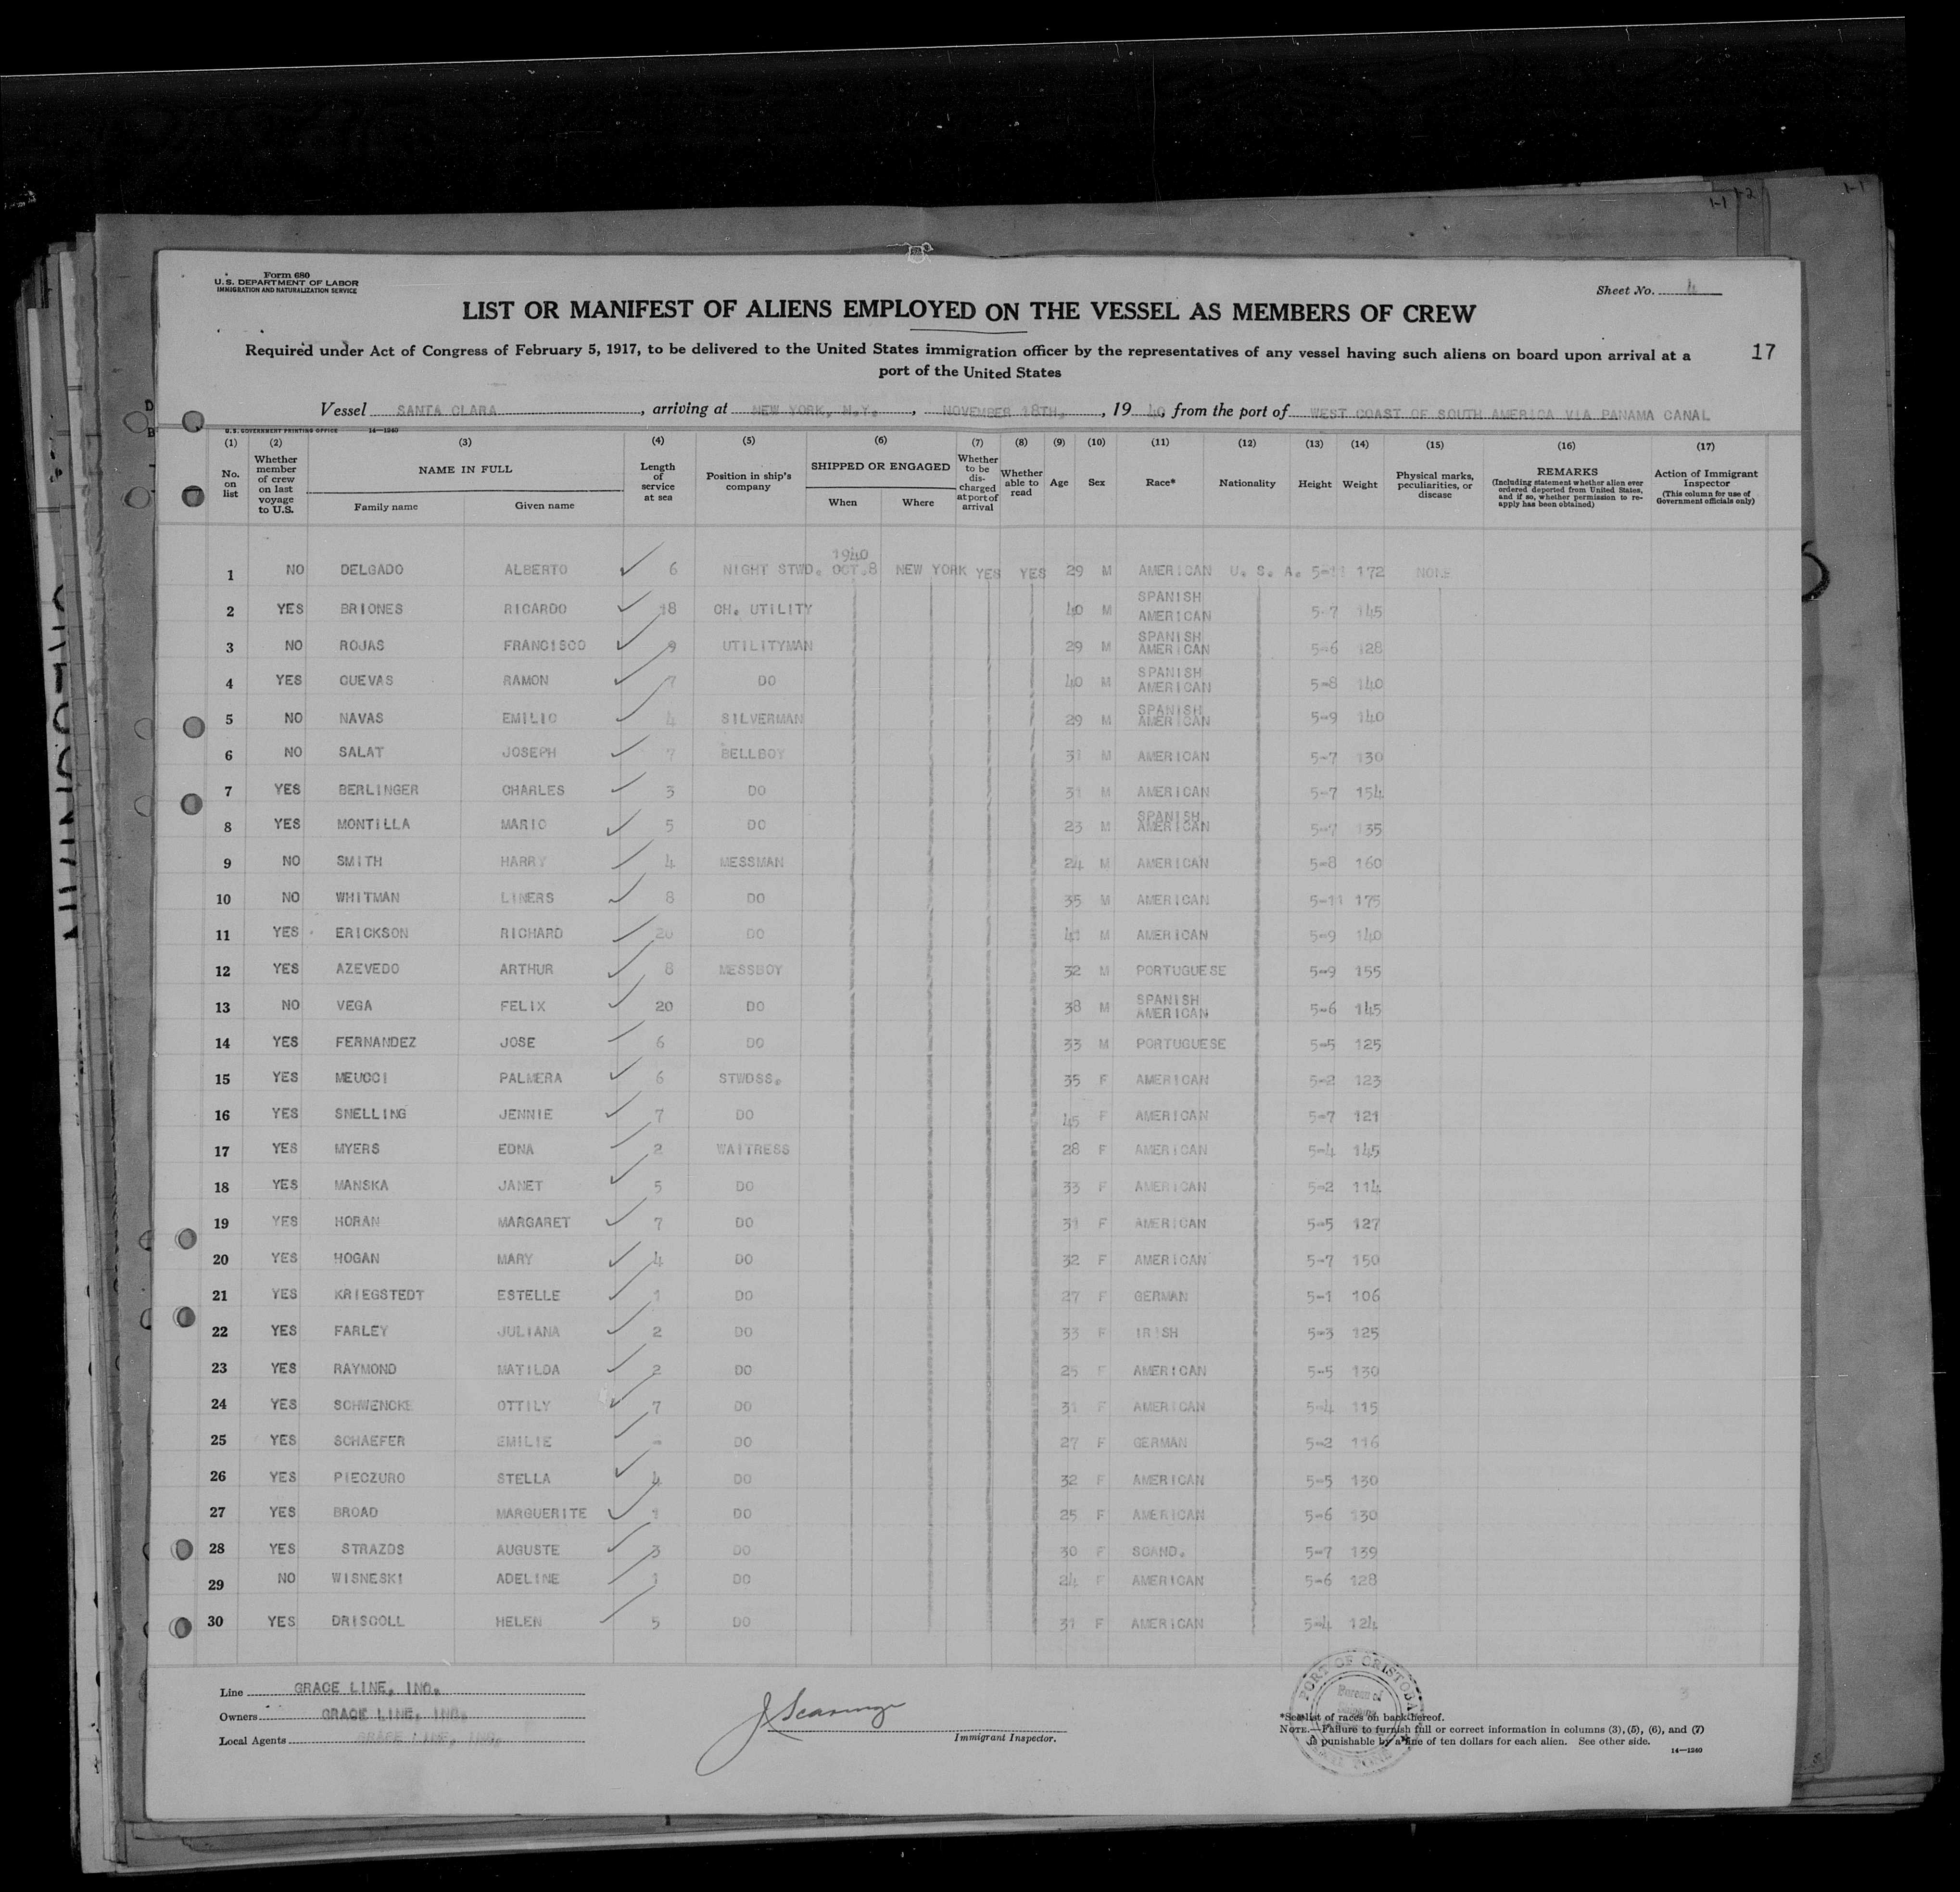 Form 680
U.S. DEPARTMENT OF LABOR
IMMIGRATION AND NATURALIZATION SERVICE
Sheet No. 4
LIST OR MANIFEST OF ALIENS EMPLOYED ON THE VESSEL AS MEMBERS OF CREW
Required under Act of Congress of February 5, 1917, to be delivered to the United States immigration officer by the representatives of any vessel having such aliens on board upon arrival at a
port of the United States
17
Vessel SANTA CLARA, arriving at NEW YORK, N.Y., NOVEMBER 18TH, 19 40 from the port of WEST COAST OF SOUTH AMERICA VIA PANAMA CANAL
U.S. GOVERNMENT PRINTING OFFICE 14—1240
(1) (2) (3) (4) (5) (6) (7) (8) (9) (10) (11) (12) (13) (14) (15) (16) (17)
No. on list
Whether member of crew on last voyage to U.S.
NAME IN FULL
Family name
Given name
Length of service at sea
Position in ship's company
SHIPPED OR ENGAGED
When
Where
Whether to be discharged at port of arrival
Whether able to read
Age
Sex
Race*
Nationality
Height
Weight
Physical marks, peculiarities, or disease
REMARKS
(Including statement whether alien ever ordered deported from United States, and if so, whether permission to reapply has been obtained)
Action of Immigrant Inspector
(This column for use of Government officials only)
1940
1 NO DELGADO ALBERTO 6 NIGHT STWD. OCT.8 NEW YORK YES YES 29 M AMERICAN U. S. A. 5-11 172 NONE
2 YES BRIONES RICARDO 18 CH. UTILITY 40 M SPANISH AMERICAN 5-7 145
3 NO ROJAS FRANCISCO 9 UTILITYMAN 29 M SPANISH AMERICAN 5-6 128
4 YES CUEVAS RAMON 7 DO 40 M SPANISH AMERICAN 5-8 140
5 NO NAVAS EMILIO 4 SILVERMAN 29 M SPANISH AMERICAN 5-9 140
6 NO SALAT JOSEPH 7 BELLBOY 31 M AMERICAN 5-7 130
7 YES BERLINGER CHARLES 3 DO 31 M AMERICAN 5-7 154
8 YES MONTILLA MARIO 5 DO 23 M SPANISH AMERICAN 5-7 135
9 NO SMITH HARRY 4 MESSMAN 24 M AMERICAN 5-8 160
10 NO WHITMAN LINERS 8 DO 35 M AMERICAN 5-11 175
11 YES ERICKSON RICHARD 20 DO 41 M AMERICAN 5-9 140
12 YES AZEVEDO ARTHUR 8 MESSBOY 32 M PORTUGUESE 5-9 155
13 NO VEGA FELIX 20 DO 38 M SPANISH AMERICAN 5-6 145
14 YES FERNANDEZ JOSE 6 DO 33 M PORTUGUESE 5-5 125
15 YES MEUCCI PALMERA 6 STWDSS. 35 F AMERICAN 5-2 123
16 YES SNELLING JENNIE 7 DO 45 F AMERICAN 5-7 121
17 YES MYERS EDNA 2 WAITRESS 28 F AMERICAN 5-4 145
18 YES MANSKA JANET 5 DO 33 F AMERICAN 5-2 114
19 YES HORAN MARGARET 7 DO 31 F AMERICAN 5-5 127
20 YES HOGAN MARY 4 DO 32 F AMERICAN 5-7 150
21 YES KRIEGSTEDT ESTELLE 1 DO 27 F GERMAN 5-1 106
22 YES FARLEY JULIANA 2 DO 33 F IRISH 5-3 125
23 YES RAYMOND MATILDA 2 DO 25 F AMERICAN 5-5 130
24 YES SCHWENCKE OTTILY 7 DO 31 F AMERICAN 5-4 115
25 YES SCHAEFER EMILIE - DO 27 F GERMAN 5-2 116
26 YES PIECZURO STELLA 4 DO 32 F AMERICAN 5-5 130
27 YES BROAD MARGUERITE 1 DO 25 F AMERICAN 5-6 130
28 YES STRAZDS AUGUSTE 3 DO 30 F SCAND. 5-7 139
29 NO WISNESKI ADELINE 1 DO 24 F AMERICAN 5-6 128
30 YES DRISCOLL HELEN 5 DO 31 F AMERICAN 5-4 124
Line GRACE LINE, INC.
Owners GRACE LINE, INC.
Local Agents GRACE LINE, INC.
Immigrant Inspector.
PORT OF CRISTOBAL
Bureau of
*See list of races on back hereof.
NOTE.—Failure to furnish full or correct information in columns (3), (5), (6), and (7)
is punishable by a fine of ten dollars for each alien. See other side.
14—1240
3